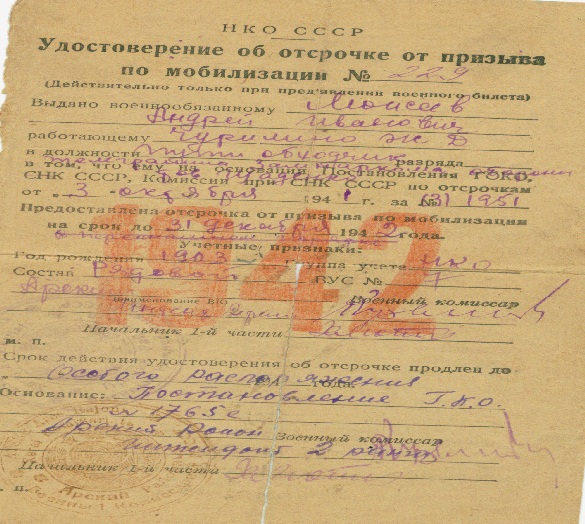 НКО СССР
Удостоверение об отсрочке от призыва
по мобилизации № 229
(Действительно только при предъявлении военного билета)
Выдано военнообязанному Моисеев
Андрей Иванович
работающему Чурилино ж д
в должности разряда
в том, что ему на основании Постановления ГОКО,
СНК СССР, Комиссии при СНК СССР по отсрочкам
от „ 3 октября 194 1 г. за № 1951
Предоставлена отсрочка от призыва по мобилизации
на срок до 31 декабря 194 2 года.
Учетные признаки:
Год рождения 1903 Группа учета НКО
Состав Рядовой ВУС № 1
1942
(наименование ВК) Военный комиссар
Начальник 1-й части
м. п.
Срок действия удостоверения об отсрочке продлен до
„ Особого распоряжения года.
Основание: Постановление Г.К.О.
1765 с
Арский Военный комиссар
интендант 2 ранга
Начальник 1-й части
п.